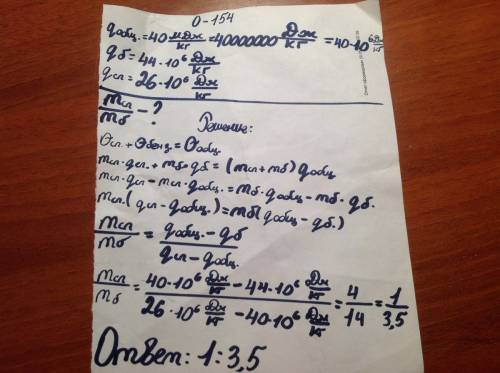 0-154
qобщ.=40 мДж/кг =40000000 Дж/кг =40·10⁶ Дж/кг
qб=44·10⁶ Дж/кг
qсп=26·10⁶ Дж/кг
mсп/mб - ?
Решение:
Qсп.+Qбенз.=Qобщ
mсп·qсп.+mб·qб=(mсп+mб)qобщ
mсп·qсп-mсп·qобщ.=mб·qобщ-mб·qб.
mсп.(qсп-qобщ.)=mб(qобщ-qб.)
mсп/mб = qобщ.-qб/qсп-qобщ.
mсп/mб = 40·10⁶ Дж/кг - 44·10⁶ Дж/кг / 26·10⁶ Дж/кг - 40·10⁶ Дж/кг = 4/14 = 1/3,5
Ответ: 1:3,5